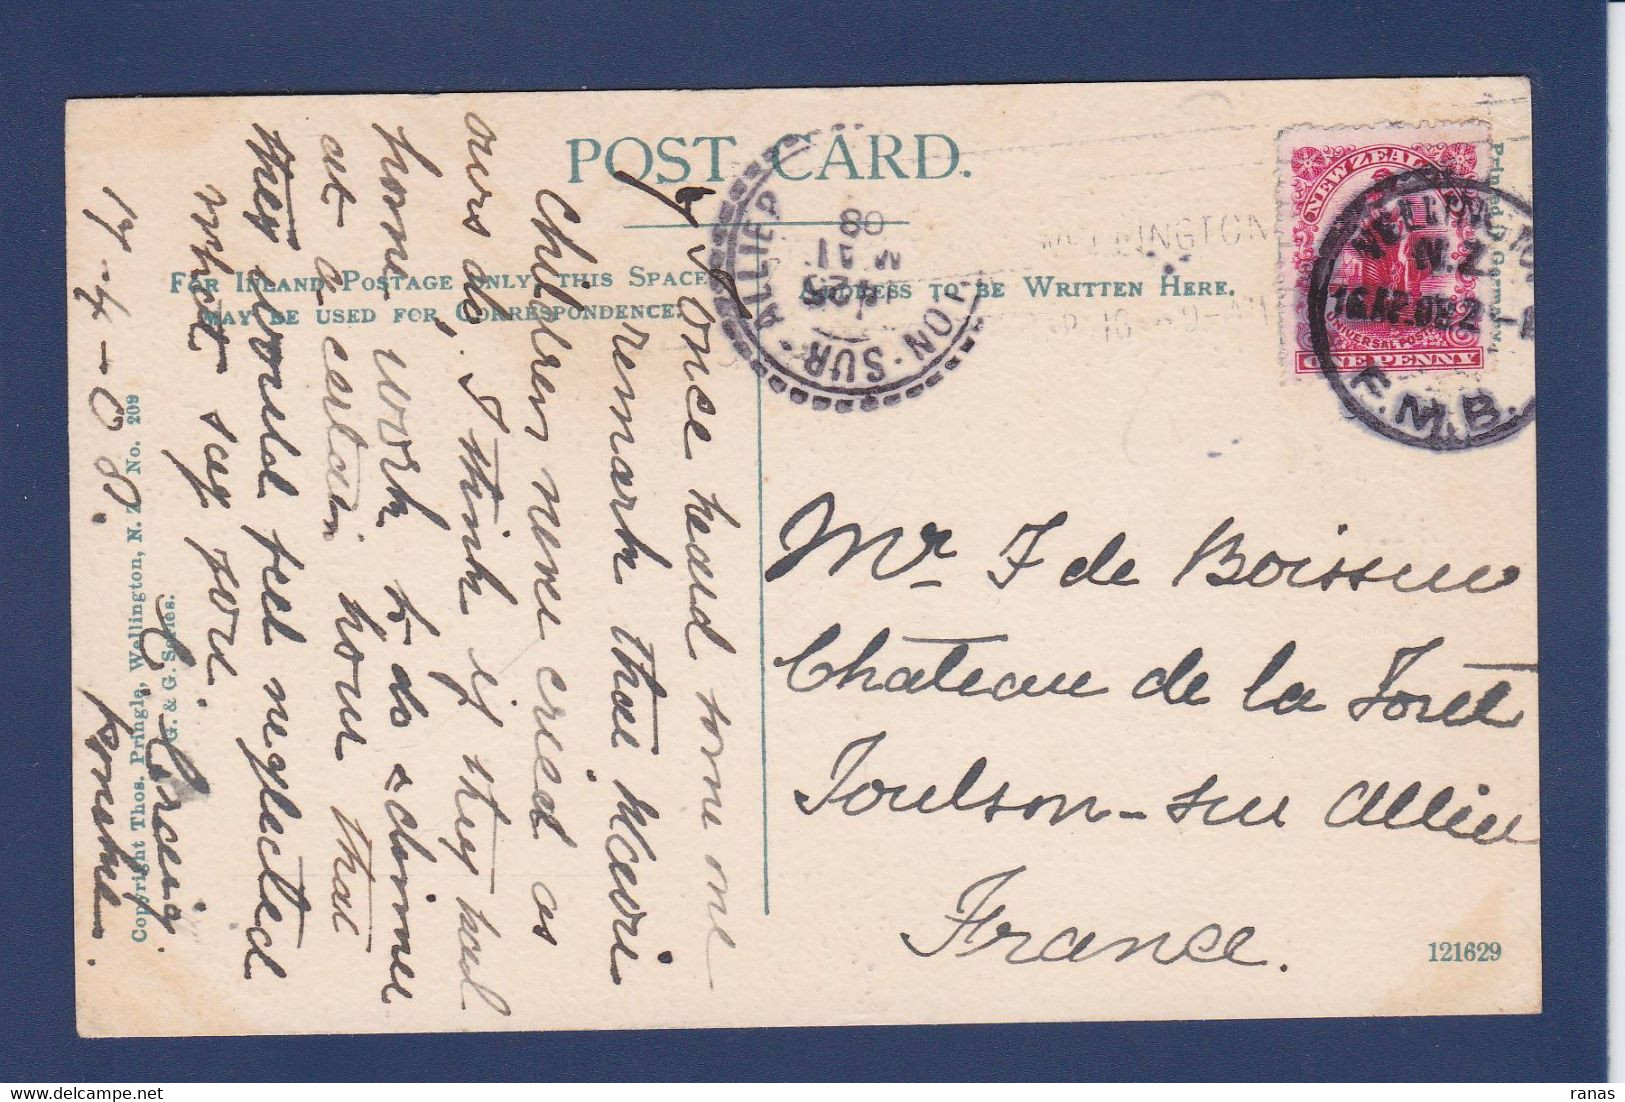 POST CARD.
FOR INLAND POSTAGE ONLY, THIS SPACE
MAY BE USED FOR CORRESPONDENCE.
ADDRESS TO BE WRITTEN HERE.
I once heard some one
remark those Maori
Children never cried as
ours do, I think if they had
home work to do & dinner
at a certain hour that
they would feel neglected
what say you.
17-4-08.
Mr F de Boissieu
Chateau de la Foret
Toulson-sur Allier
France.
Copyright Thos. Pringle, Wellington, N. Z. No. 209
G. & G. Series.
121629
Printed in Germany.
NEW ZEALAND
UNIVERSAL POSTAGE
ONE PENNY
WELLINGTON
N.Z.
16 AP 08
F.M.B.
WELLINGTON
TOULON-SUR-ALLIER
08
ranas